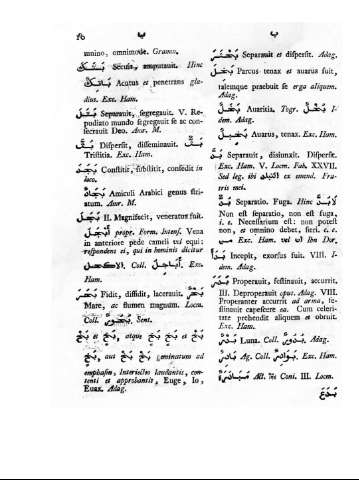 16
ب
ب
mnino, omnimode. Gramm.
Secuit, amputauit. Hinc
Acutus et penetrans gla-
dius. Exc. Ham.
بتل Separauit, segregauit. V. Re-
pudiato mundo segregauit se ac con-
secrauit Deo. Aur. M.
بث Dispersit, disseminauit.
Tristitia. Exc. Ham.
Constitit, substitit, consedit in
loco.
Amiculi Arabici genus stri-
atum. Aur. M.
بجل II. Magnifecit, veneratus fuit.
أبجل propr. Form. Intens. Vena
in anteriore pede cameli vel equi:
respondens ei, qui in hominis dicitur
الاكحل. Coll. أباجل. Exc.
Ham.
بحر Fidit, diffidit, lacerauit.
Mare, ac flumen magnum. Locm.
Coll. بحور. Sent.
بخ et بخ, atque بخ بخ et بخ
بخ, aut بخ بخ geminatum ad
emphasin, Interiectio laudantis, con-
tenti et approbantis, Euge, Io,
Euax. Adag.
بحثر Separauit et dispersit. Adag.
بخل Parcus tenax et auarus fuit,
talemque praebuit se erga aliquem.
Adag.
بخل Auaritia. Togr. بخل I-
dem. Adag.
بخيل Auarus, tenax. Exc. Ham.
بد Separauit, disiunxit. Dispersit.
Exc. Ham. V. Locm. Fab. XXVII.
Sed leg. ibi ex emend. Fra-
tris mei.
بد Separatio. Fuga. Hinc لا بد
Non est separatio, non est fuga,
i. e. Necessarium est: non potest
non, et omnino debet, fieri. c. c.
من Exc. Ham. vel ان Ibn Dor.
بدأ Incepit, exorsus fuit. VIII. I-
dem. Adag.
بدر Properauit, festinauit, accurrit.
III. Deproperauit opus. Adag. VIII.
Properanter accurrit ad arma, fe-
stinauit capescere ea. Cum celeri-
tate prehendit aliquem et obruit.
Exc. Ham.
بدر Luna. Coll. بدور. Adag.
Ag. Coll. بوادر. Exc. Ham.
مبادرة Act. Coni. III. Locm.
بدع